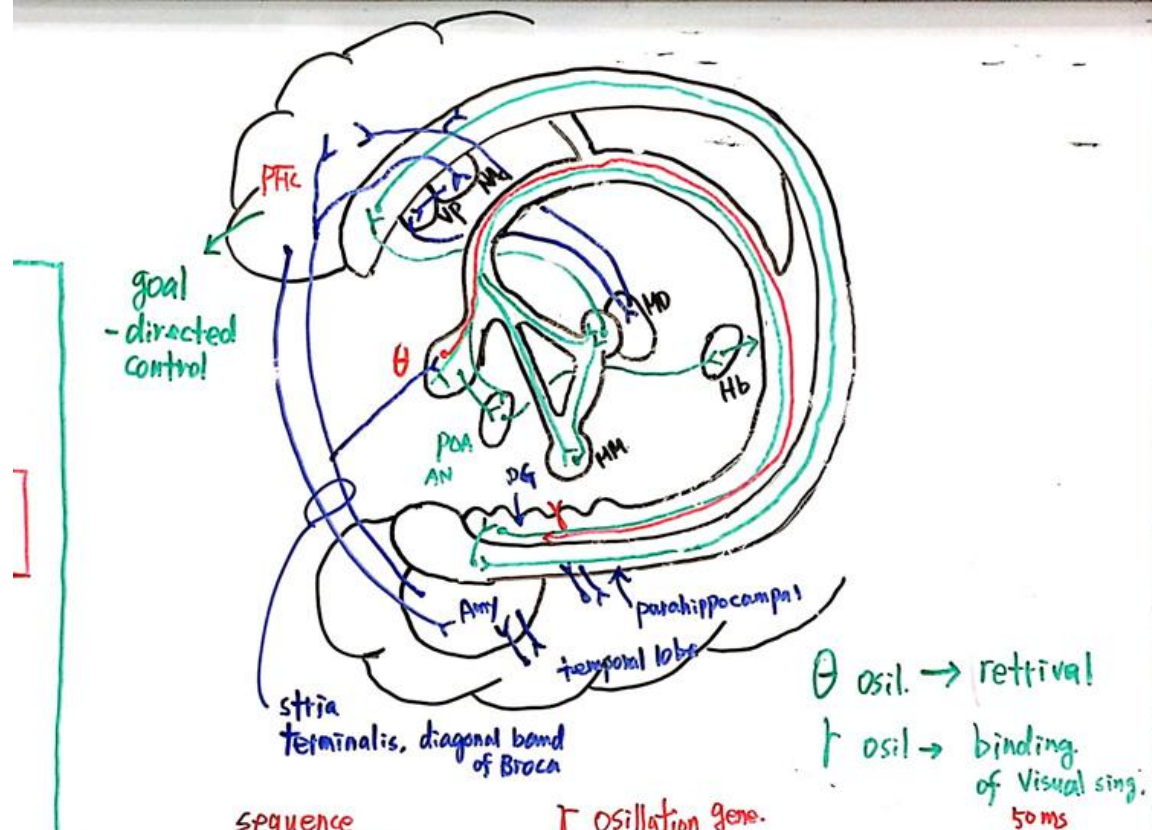 PFC
NAc
VP
goal
-directed
control
θ
MD
Hb
POA
AN
MM
DG
γ
Amy
parahippocampus
temporal lobe
stria
terminalis, diagonal band
of Broca
θ osil. → retrival
γ osil → binding
of Visual sing.
50ms
sequence
γ osillation gene.